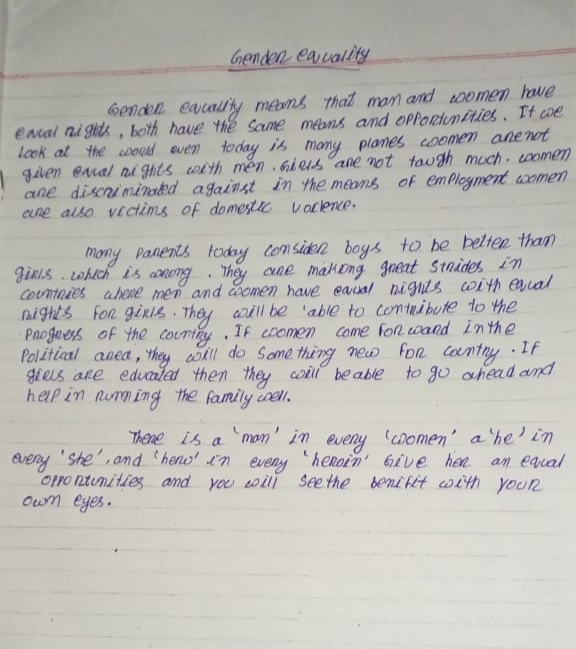 Gender equality
Gender equality means that man and women have
equal rights, both have the same means and opportunities. If we
look at the world even today is many planes women are not
given equal rights with men. Girls are not taugh much. women
are discriminated against in the means of employment women
are also victims of domestic voilence.
many parents today consider boys to be better than
girls. which is wrong. They are making great strides in
countries where men and women have equal rights with equal
rights for girls. They will be 'able to contribute to the
progress of the country. If women come forward in the
Political area, they will do some thing new for country. If
girls are educated then they will be able to go ahead and
help in running the family well.
There is a 'man' in every 'women' a 'he' in
every 'she', and 'hero' in every 'heroin' Give her an equal
opportunities and you will see the benifit with your
own eyes.